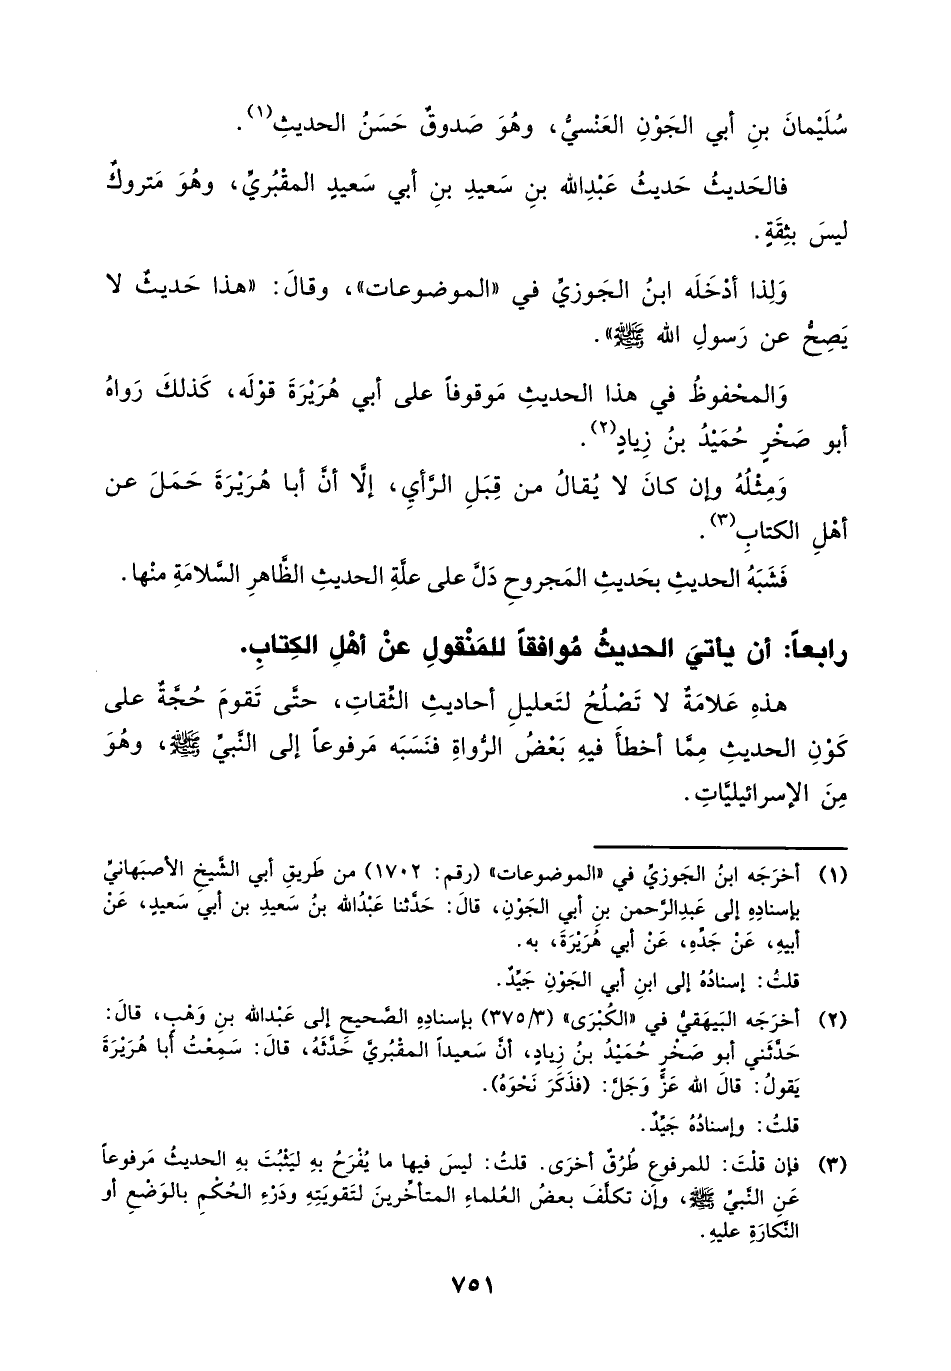 سُلَيْمانَ بنِ أبي الجَوْنِ العَنْسيُّ، وهُوَ صَدوقٌ حَسَنُ الحديثِ(١).
فالحَديثُ حَديثُ عَبْدِالله بنِ سَعيدِ بنِ أبي سَعيدٍ المقْبُريِّ، وهُوَ مَتروكٌ
ليسَ بثِقَةٍ.
وَلِذا أدْخَلَه ابنُ الجَوزيِّ في «الموضوعات»، وقالَ: «هذا حَديثٌ لا
يَصِحُّ عن رَسولِ الله ﷺ».
وَالمحْفوظُ في هذا الحديثِ مَوقوفاً على أبي هُرَيْرَةَ قوْلَه، كَذلكَ رَواهُ
أبو صَخْرٍ حُمَيْدُ بنُ زِيادٍ(٢).
وَمِثْلُهُ وإن كانَ لا يُقالُ من قِبَلِ الرَّأيِ، إلَّا أنَّ أبا هُرَيْرَةَ حَمَلَ عن
أهْلِ الكتابِ(٣).
فَشَبَهُ الحديثِ بحَديثِ المَجروحِ دَلَّ على علَّةِ الحديثِ الظَّاهرِ السَّلامَةِ منْها.
رابعاً: أن يأتيَ الحديثُ مُوافقاً للمَنْقولِ عنْ أهْلِ الكِتابِ.
هذهِ عَلامَةٌ لا تَصْلُحُ لتَعليلِ أحاديثِ الثِّقاتِ، حتَّى تَقومَ حُجَّةٌ على
كَوْنِ الحديثِ مِمَّا أخطأَ فيهِ بَعْضُ الرُّواةِ فنَسَبَه مَرفوعاً إلى النَّبيِّ ﷺ، وهُوَ
مِنَ الإسرائيليَّاتِ.
(١) أخرَجَه ابنُ الجَوزيِّ في «الموضوعات» (رقم: ١٧٠٢) من طَريقِ أبي الشَّيخِ الأصبَهانيِّ
بإسنادِهِ إلى عَبدِالرَّحمن بنِ أبي الجَوْنِ، قالَ: حَدَّثنا عَبْدُالله بنُ سَعيدِ بن أبي سَعيدٍ، عَنْ
أبيهِ، عَنْ جَدِّهِ، عَنْ أبي هُرَيْرَةَ، به.
قلتُ: إسنادُهُ إلى ابنِ أبي الجَوْنِ جَيِّدٌ.
(٢) أخرَجَه البَيهَقيُّ في «الكُبْرَى» (٣/ ٣٧٥) بإسنادِهِ الصَّحيحِ إلى عَبْدِالله بنِ وَهْبٍ، قالَ:
حَدَّثَني أبو صَخْرٍ حُمَيْدُ بنُ زِيادٍ، أنَّ سَعيداً المقْبُريَّ حَدَّثَهُ، قالَ: سَمِعْتُ أبا هُرَيْرَةَ
يَقولُ: قالَ الله عَزَّ وَجَلَّ: (فذَكَرَ نَحْوَهُ).
قلتُ: وإسنادُهُ جَيِّدٌ.
(٣) فإن قلْتَ: للمرفوعِ طُرُقٌ أخرَى. قلتُ: ليسَ فيها ما يُفْرَحُ بهِ ليَثْبُتَ بهِ الحديثُ مَرفوعاً
عَنِ النَّبيِّ ﷺ، وإن تكلَّفَ بعضُ العُلماءِ المتأخِّرينَ لتَقويَتِهِ ودَرْءِ الحُكْمِ بالوَضْعِ أو
النَّكارَةِ عليهِ.
٧٥١